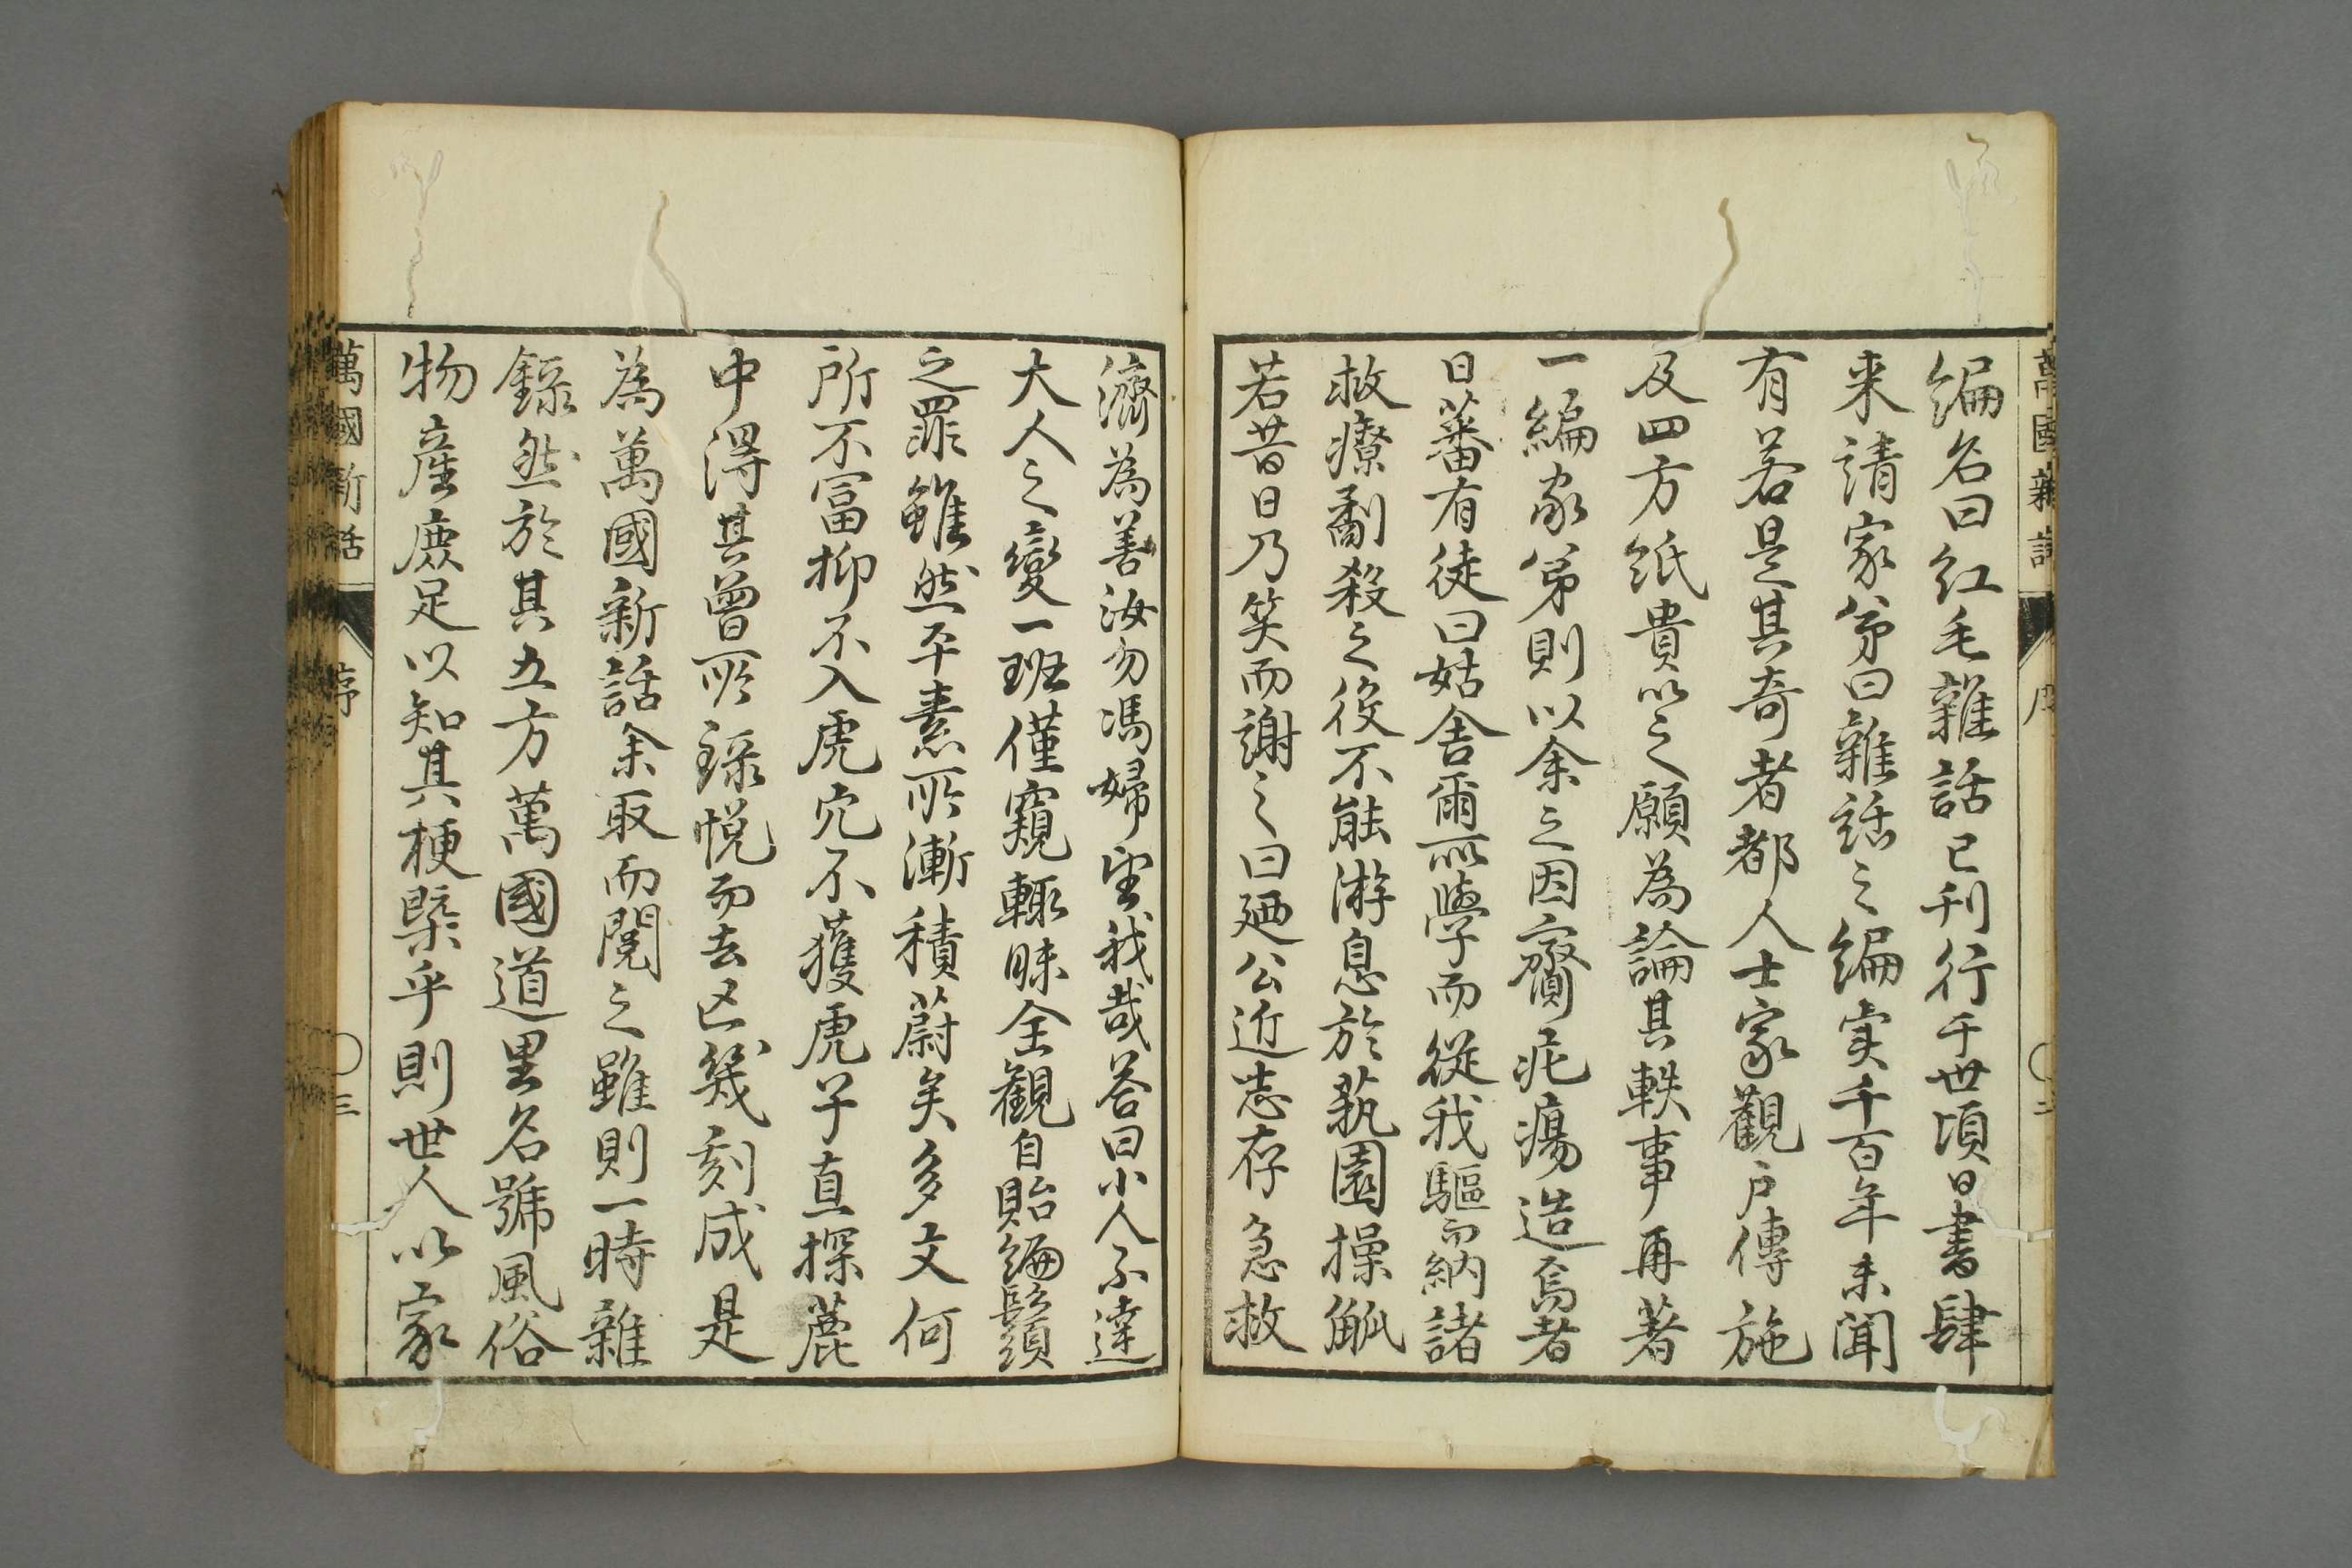 編名曰紅毛雜話已刊行于世頃日書肆
来請家弟曰雜話之編実千百年未聞
有若是其奇者都人士家觀戶傳施
及四方紙貴以之願為論其軼事再著
一編家弟則以余之因齎疕瘍造焉者
日蕃有徒曰姑舍爾所學而從我驅而納諸
救療劀殺之役不能游息於蓺園操觚
若昔日乃笑而謝之曰廼公近志存急救
濟為善汝勿馮婦望我哉答曰小人不達
大人之變一班僅窺輙昧全觀自貽編鬚
之罪雖然平素所漸積蔚矣多文何
所不富抑不入虎穴不獲虎子直探麓
中得其曽所録悦而去亡幾刻成是
為萬國新話余取而閲之雖則一時雜
録然於其五方萬國道里名號風俗
物産庶足以知其梗槩乎則世人以家
萬國新話
序
三